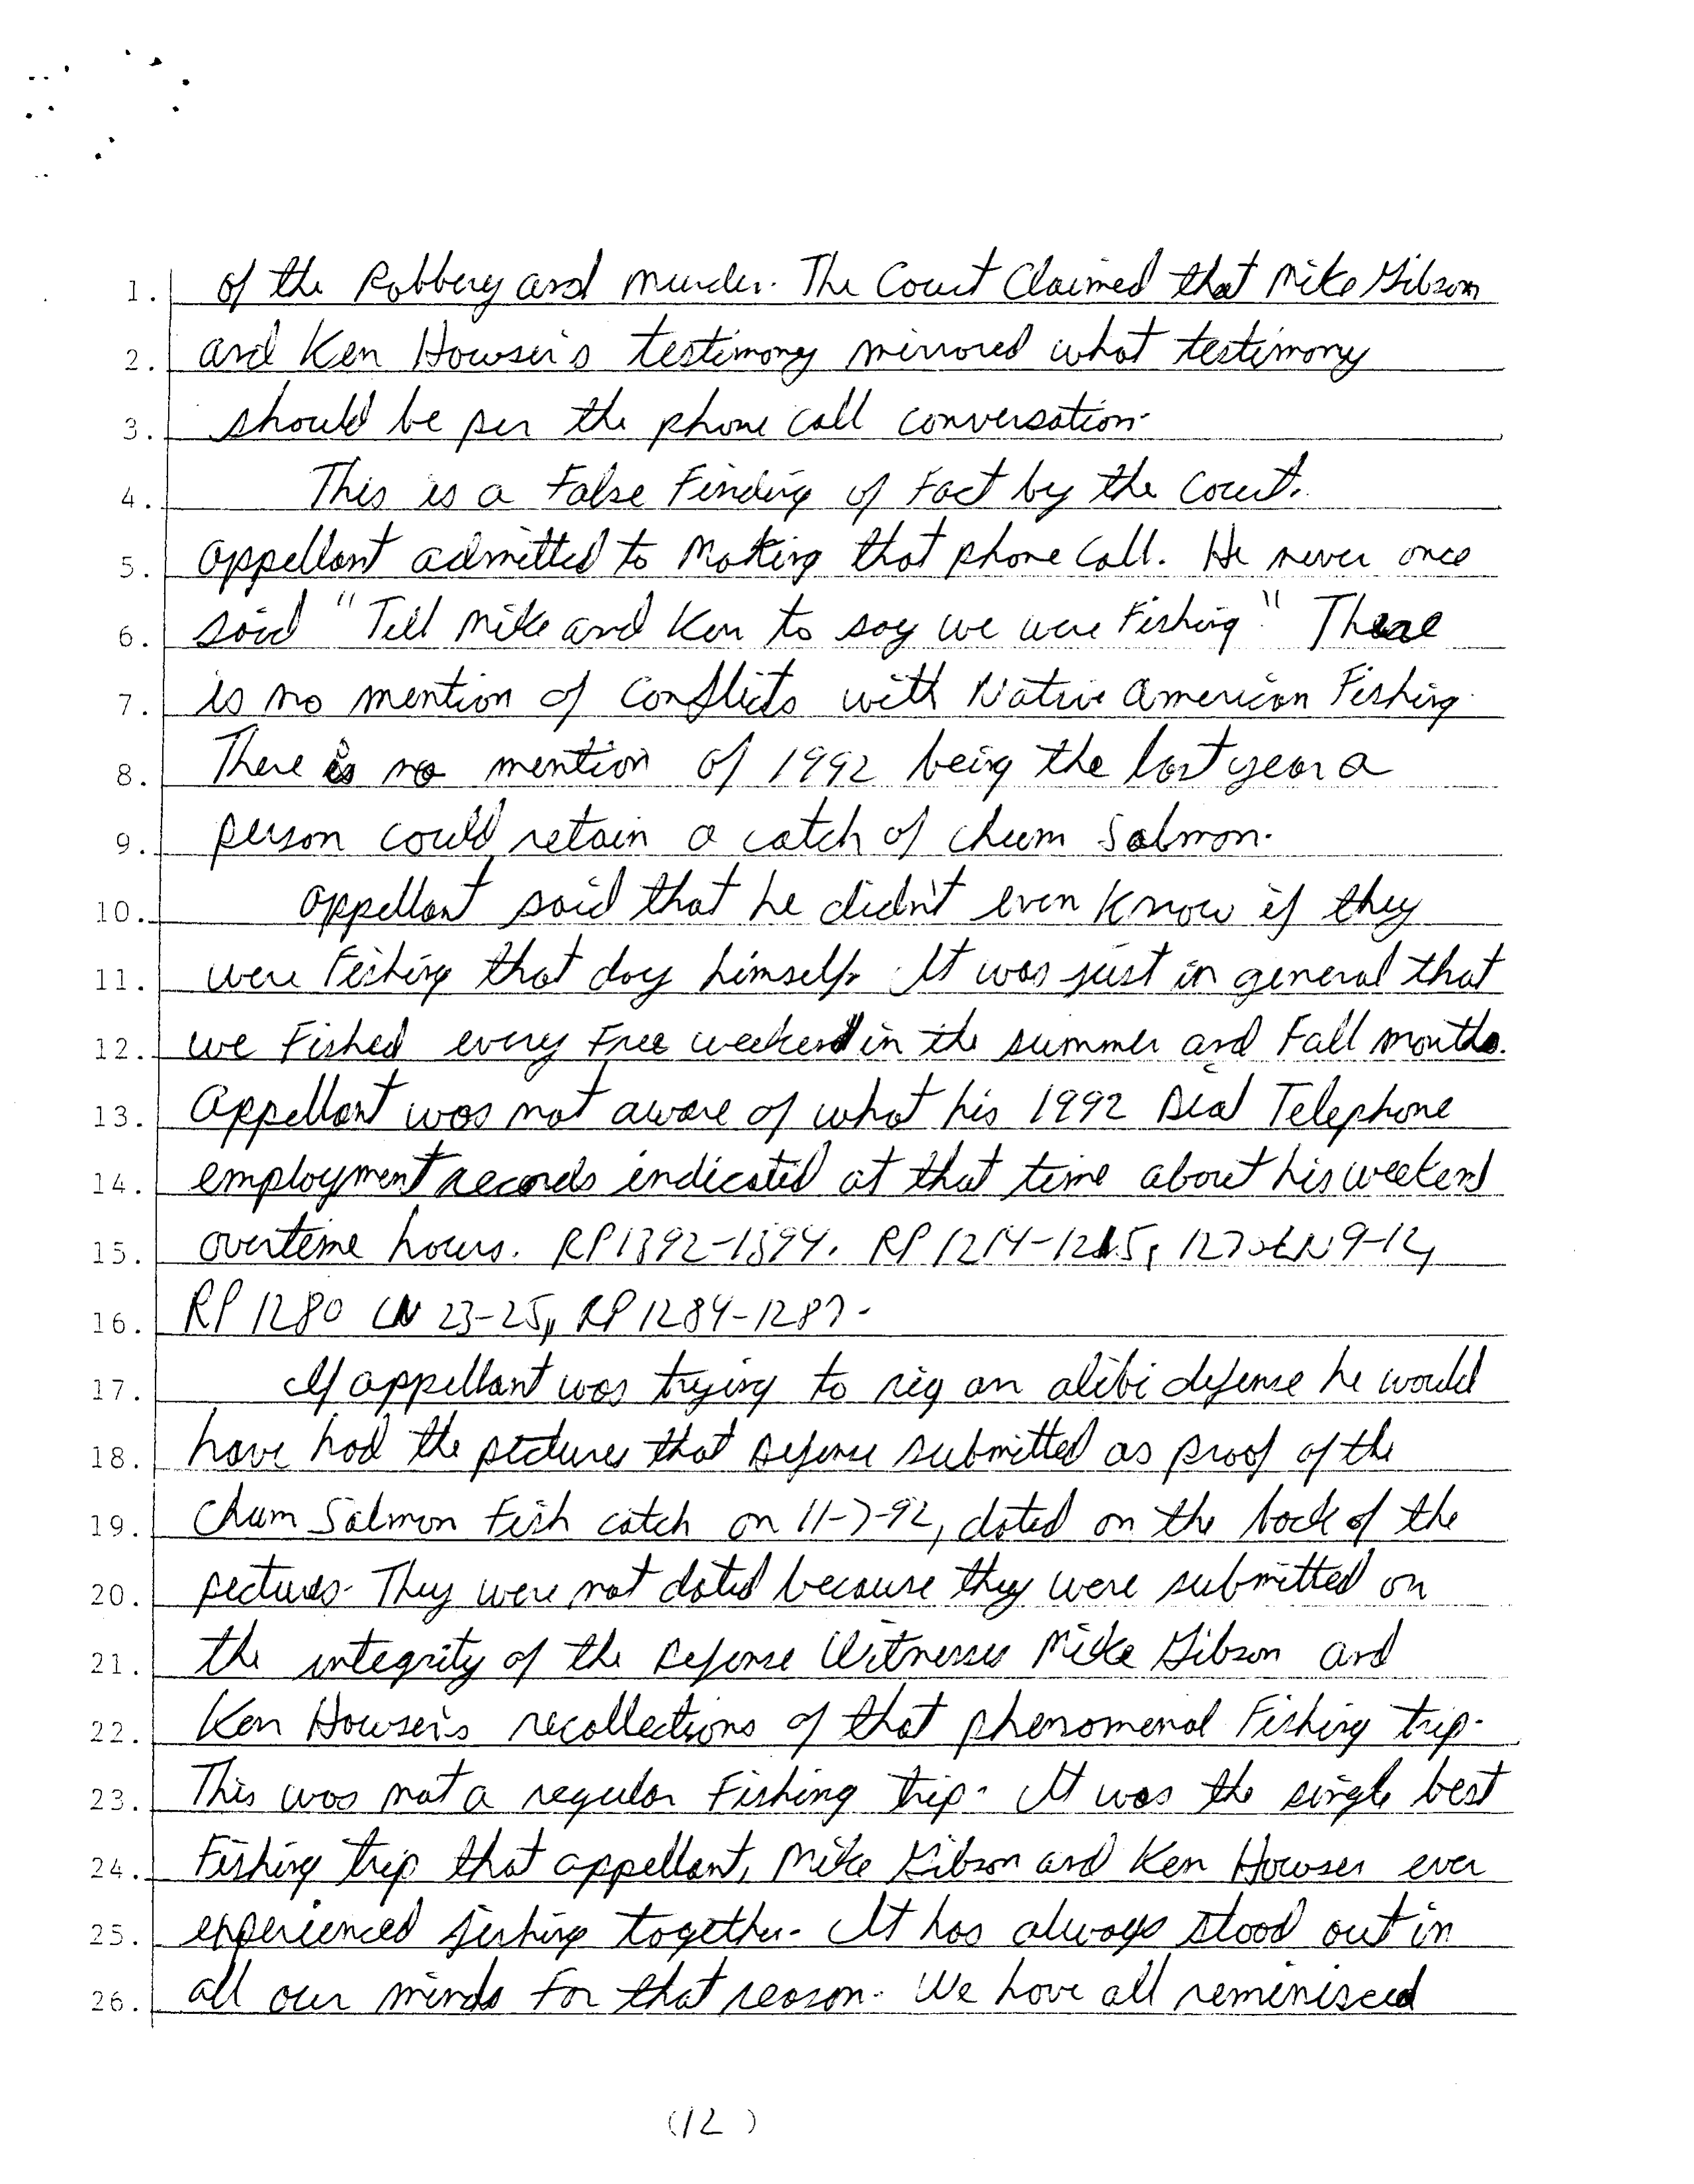 1. of the Robbery and murder. The Court Claimed that Mike Gibson
2. and Ken Howser's testimony mirrored what testimony
3. should be per the phone call conversation.
4. This is a False Finding of Fact by the Court.
5. Appellant admitted to Making that phone Call. He never once
6. said "Tell Mike and Ken to say we were Fishing". There
7. is no mention of Conflicts with Native American Fishing.
8. There is no mention of 1992 being the last year a
9. person could retain a catch of chum Salmon.
10. Appellant said that he didn't even Know if they
11. were Fishing that day himself. It was just in general that
12. we Fished every Free weekend in the summer and Fall months.
13. Appellant was not aware of what his 1992 Dial Telephone
14. employment records indicated at that time about his weekend
15. overtime hours. RP 1392-1394. RP 1214-1215, LN 9-12,
16. RP 1280 LN 23-25, RP 1284-1287.
17. If appellant was trying to rig an alibi defense he would
18. have had the pictures that Defense submitted as proof of the
19. Chum Salmon Fish catch on 11-7-92, dated on the back of the
20. pictures. They were not dated because they were submitted on
21. the integrity of the Defense Witnesses Mike Gibson and
22. Ken Howser's recollections of that phenomenal Fishing trip.
23. This was not a regular Fishing trip. It was the single best
24. Fishing trip that appellant, Mike Gibson and Ken Howser ever
25. experienced fishing together. It has always stood out in
26. all our minds For that reason. We have all reminisced
(12)